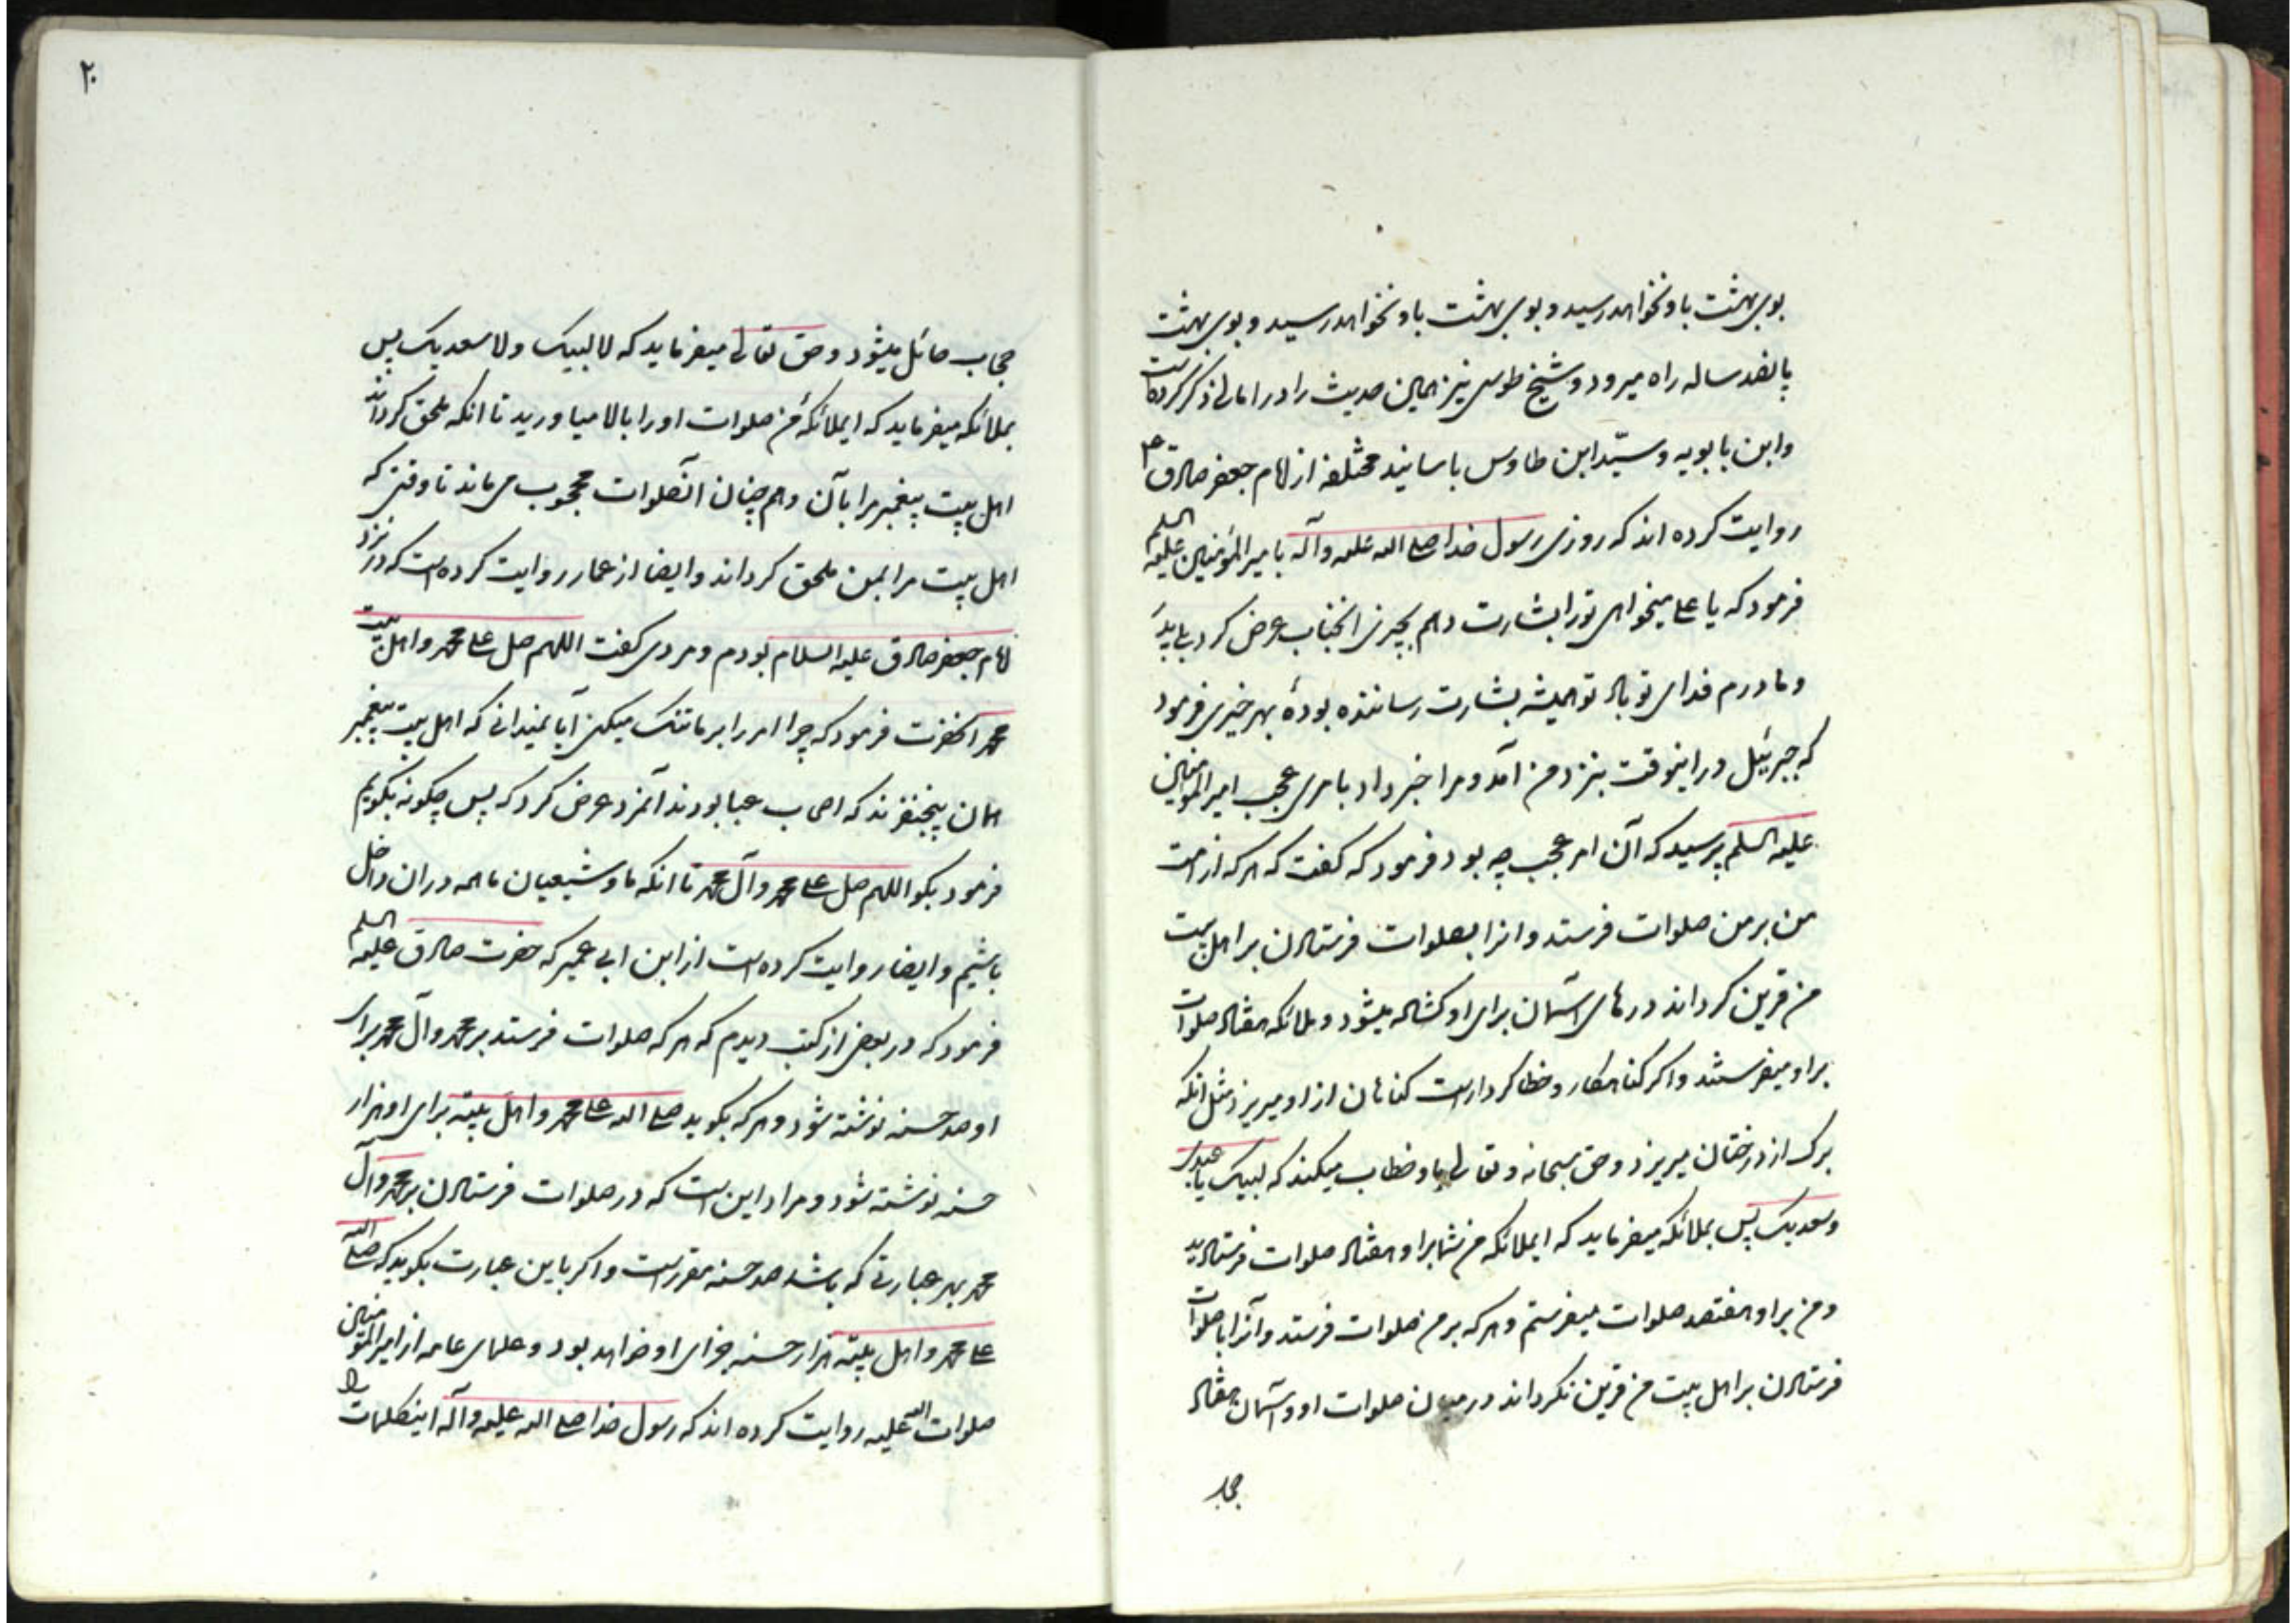 بوی بهشت باو نخواهد رسید و بوی بهشت باو نخواهد رسید و بوی بهشت
پانصد ساله راه میرود و شیخ طوسی نیز همین حدیث را در امالی ذکر کرده است
وابن بابویه و سیّد ابن طاوس باسانید مختلفه از امام جعفر صادق ع
روایت کرده اند که روزی رسول خدا صلی الله علیه وآله با میرالمؤمنین علیه السلم
فرمود که یا علی میخواهی تو را بشارت دهم بچیزی انجناب عرض کرد بلی پدر
و مادرم فدای تو باد تو همیشه بشارت رساننده بودهٔ بهر خیری فرمود
که جبرئیل در اینوقت بنزد من آمد و مرا خبر داد بامری عجب امیرالمؤمنین
علیه السلم پرسید که آن امر عجب چه بود فرمود که گفت که هر که از امت
من بر من صلوات فرستد و انرا بصلوات فرستادن بر اهل بیت
من قرین کرداند درهای آسمان برای او کشاده میشود و ملائکه هفتاد صلوات
براو میفرستند و اکر کناهکار و خطا کردارست کناهان از او میریزد مثل انکه
برک از درختان میریزد و حق سبحانه و تعالی باو خطاب میکند که لبیک یا عبدی
وسعدیک پس بملائکه میفرماید که ایملائکه من شما براو هفتاد صلوات فرستادید
و من براو هفتصد صلوات میفرستم و هر که بر من صلوات فرستد و آنرا با صلوات
فرستادن بر اهل بیت من قرین نکرداند در میان صلوات او و آسمان هفتاد
حجاب
۲۰
حجاب حائل میشود و حق تعالی میفرماید که لا لبیک ولا سعدیک پس
بملائکه میفرماید که ایملائکه من صلوات او را بالا میاورید تا انکه ملحق کرداند
اهل بیت پیغمبر مرا بآن و هم چنان آنصلوات محجوب می ماند تا وقتی که
اهل بیت مرا بمن ملحق کرداند و ایضا از عمار روایت کرده است که در نزد
امام جعفر صادق علیه السلام بودم و مردی کفت اللهم صل علی محمد واهل بیت
محمد انحضرت فرمود که چرا امر را بر ما تنک میکنی آیا نمیدانی که اهل بیت پیغمبر
همان پنجنفرند که اصحاب عبا بودند آنمرد عرض کرد که پس چکونه بکویم
فرمود بکو اللهم صل علی محمد وآل محمد تا انکه ما و شیعیان ما همه دران داخل
باشیم و ایضا روایت کرده است از ابن ابی عمیر که حضرت صادق علیه السلم
فرمود که در بعضی از کتب دیدم که هر که صلوات فرستد بر محمد وآل محمد برای
او صد حسنه نوشته شود و هر که بکوید صلی الله علی محمد واهل بیته برای او هزار
حسنه نوشته شود و مراد این است که در صلوات فرستادن بر محمد وآل
محمد بهر عبارتی که باشد صد حسنه مقررست و اکر باین عبارت بکوید که صلی الله
علی محمد واهل بیته هزار حسنه جزای او خواهد بود و علمای عامه از امیرالمؤمنین
صلوات الله علیه روایت کرده اند که رسول خدا صلی الله علیه وآله اینکلمات را